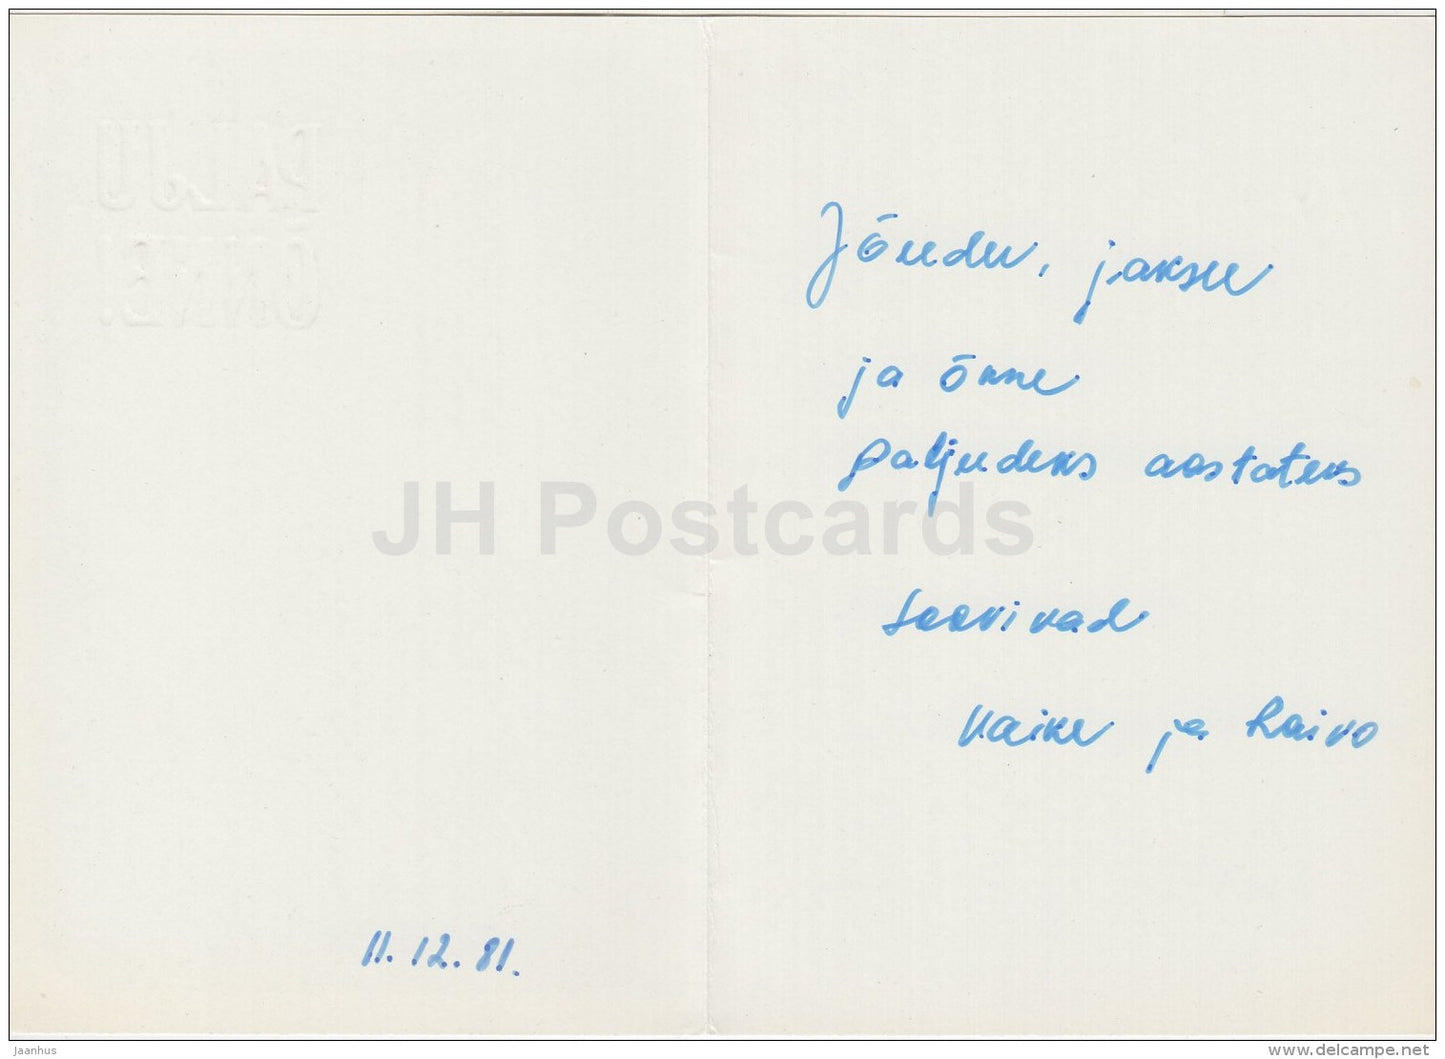 PALJU
ÕNNE!
Jõudu, jaksu
ja õnne
paljudeks aastateks
soovivad
Vaike ja Raivo
11.12.81.
JH Postcards
jaanhus
www.delcampe.net